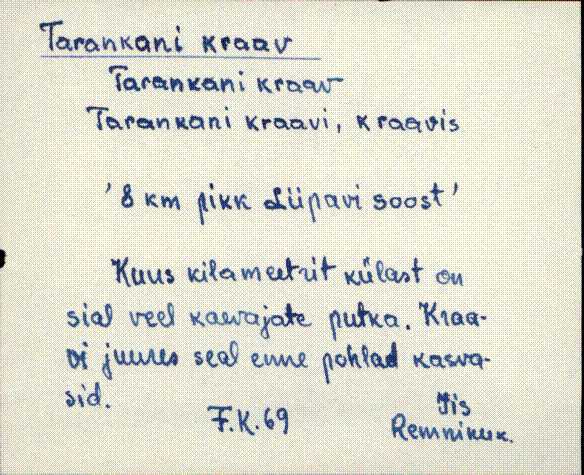 Tarankani kraav
Tarankani kraav
Tarankani kraavi, kraavis
'8 km pikk Liipavi soost'
Kuus kilameetrit külast on
sial veel kaevajate putka. Kraa-
vi juures seal enne pohlad kasva-
sid.
F.K. 69 Iis
Remnikuk.